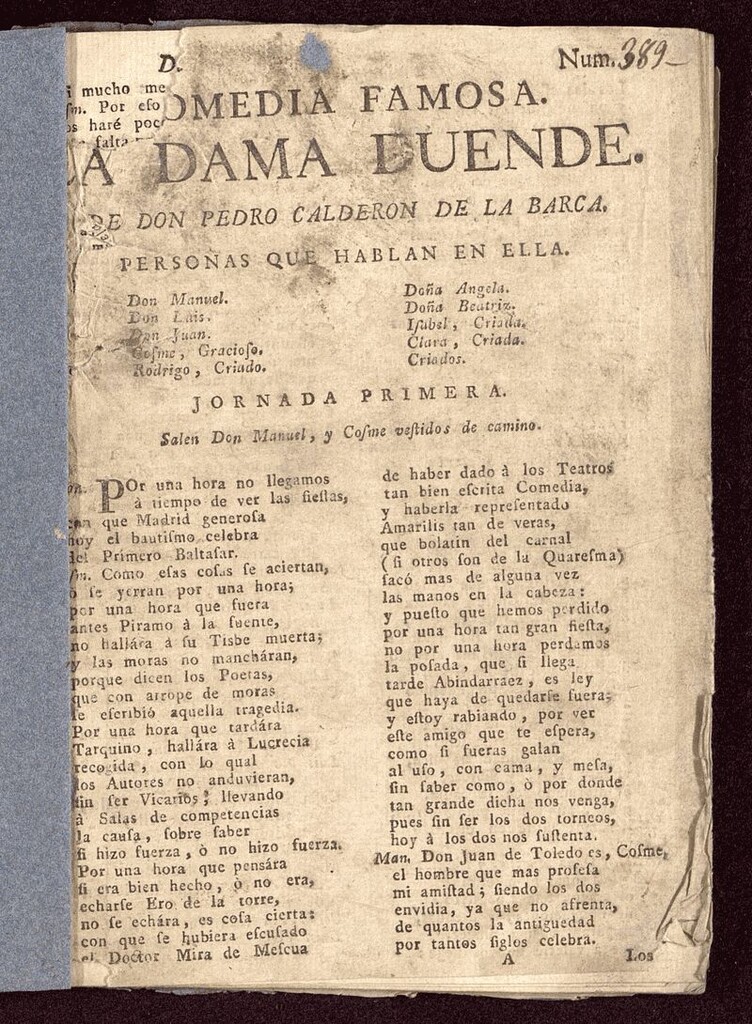 D.
Num. 389
i mucho me
ſm. Por eſo
os haré poc
falta
OMEDIA FAMOSA.
A DAMA DUENDE.
DE DON PEDRO CALDERON DE LA BARCA.
PERSONAS QUE HABLAN EN ELLA.
Don Manuel.
Don Luis.
Don Juan.
Coſme, Gracioſo.
Rodrigo, Criado.
Doña Angela.
Doña Beatriz.
Iſabel, Criada.
Clara, Criada.
Criados.
JORNADA PRIMERA.
Salen Don Manuel, y Coſme veſtidos de camino.
an. POr una hora no llegamos
à tiempo de ver las fieſtas,
con que Madrid generoſa
hoy el bautiſmo celebra
del Primero Baltaſar.
ſm. Como eſas coſas ſe aciertan,
ò ſe yerran por una hora;
por una hora que fuera
antes Piramo à la fuente,
no hallára à ſu Tisbe muerta;
y las moras no mancháran,
porque dicen los Poetas,
que con arrope de moras
ſe eſcribió aquella tragedia.
Por una hora que tardára
Tarquino, hallára à Lucrecia
recogida, con lo qual
los Autores no anduvieran,
ſin ſer Vicarios, llevando
à Salas de competencias
la cauſa, ſobre ſaber
ſi hizo fuerza, ò no hizo fuerza.
Por una hora que penſára
ſi era bien hecho, ò no era,
echarſe Ero de la torre,
no ſe echára, es coſa cierta:
con que ſe hubiera eſcuſado
el Doctor Mira de Meſcua
de haber dado à los Teatros
tan bien eſcrita Comedia,
y haberla repreſentado
Amarilis tan de veras,
que bolatin del carnal
(ſi otros ſon de la Quareſma)
ſacó mas de alguna vez
las manos en la cabeza:
y pueſto que hemos perdido
por una hora tan gran fieſta,
no por una hora perdamos
la poſada, que ſi llega
tarde Abindarraez, es ley
que haya de quedarſe fuera;
y eſtoy rabiando, por ver
eſte amigo que te eſpera,
como ſi fueras galan
al uſo, con cama, y meſa,
ſin ſaber como, ò por donde
tan grande dicha nos venga,
pues ſin ſer los dos torneos,
hoy à los dos nos ſuſtenta.
Man. Don Juan de Toledo es, Coſme,
el hombre que mas profeſa
mi amiſtad; ſiendo los dos
envidia, ya que no afrenta,
de quantos la antiguedad
por tantos ſiglos celebra.
A
Los